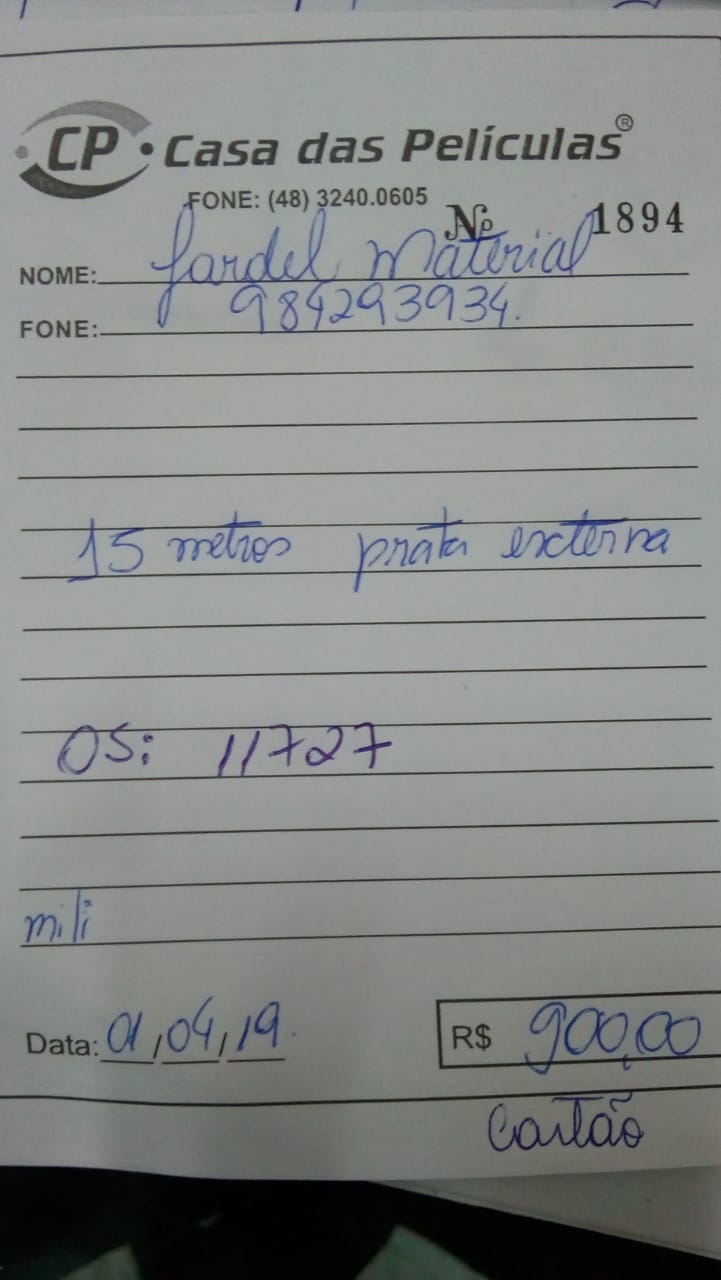 CP Casa das Películas®
FONE: (48) 3240.0605
Nº 1894
NOME: Jardel Material
FONE: 984293934.
15 metros prata externa
OS: 11727
mili
Data: 01/04/19
R$ 900,00
Cartão